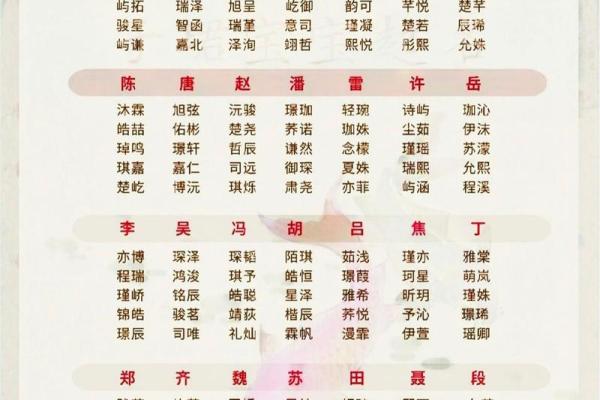 屿拓 瑞泽 旭呈 屹御 韵可 芊悦 楚芊
骏星 智函 瑞瑾 意司 瑾凝 楚若 辰琋
屿谦 嘉北 泽洵 翊哲 熙悦 彤熙 允姝
陈 唐 赵 潘 雷 许 岳
沐霖 旭弦 沅骏 璟珈 轻琬 诗屿 珈沁
皓喆 佑彬 楚尧 荞诺 珈姝 尘茹 伊沫
琸鸣 璟轩 哲辰 谦然 念檬 瑾瑶 苏濛
琪嘉 嘉仁 司远 御琛 夏姝 瑞熙 允熙
楚屹 博沅 琪烁 肃尧 亦菲 屿涵 程溪
李 吴 冯 胡 吕 焦 丁
亦博 琛泽 琛韬 陌琪 茹浅 瑾亦 雅棠
程瑞 鸿浚 琪予 皓恒 璟葭 珂星 萌岚
瑾峤 铭辰 皓聪 星泽 雅希 昕玥 瑾姝
锦皓 骏茗 靖荻 楷辰 荞悦 予沁 璟琋
璟辰 司唯 礼灿 霖帆 漫霏 伊萱 瑶卿
郑 齐 魏 苏 田 聂 段